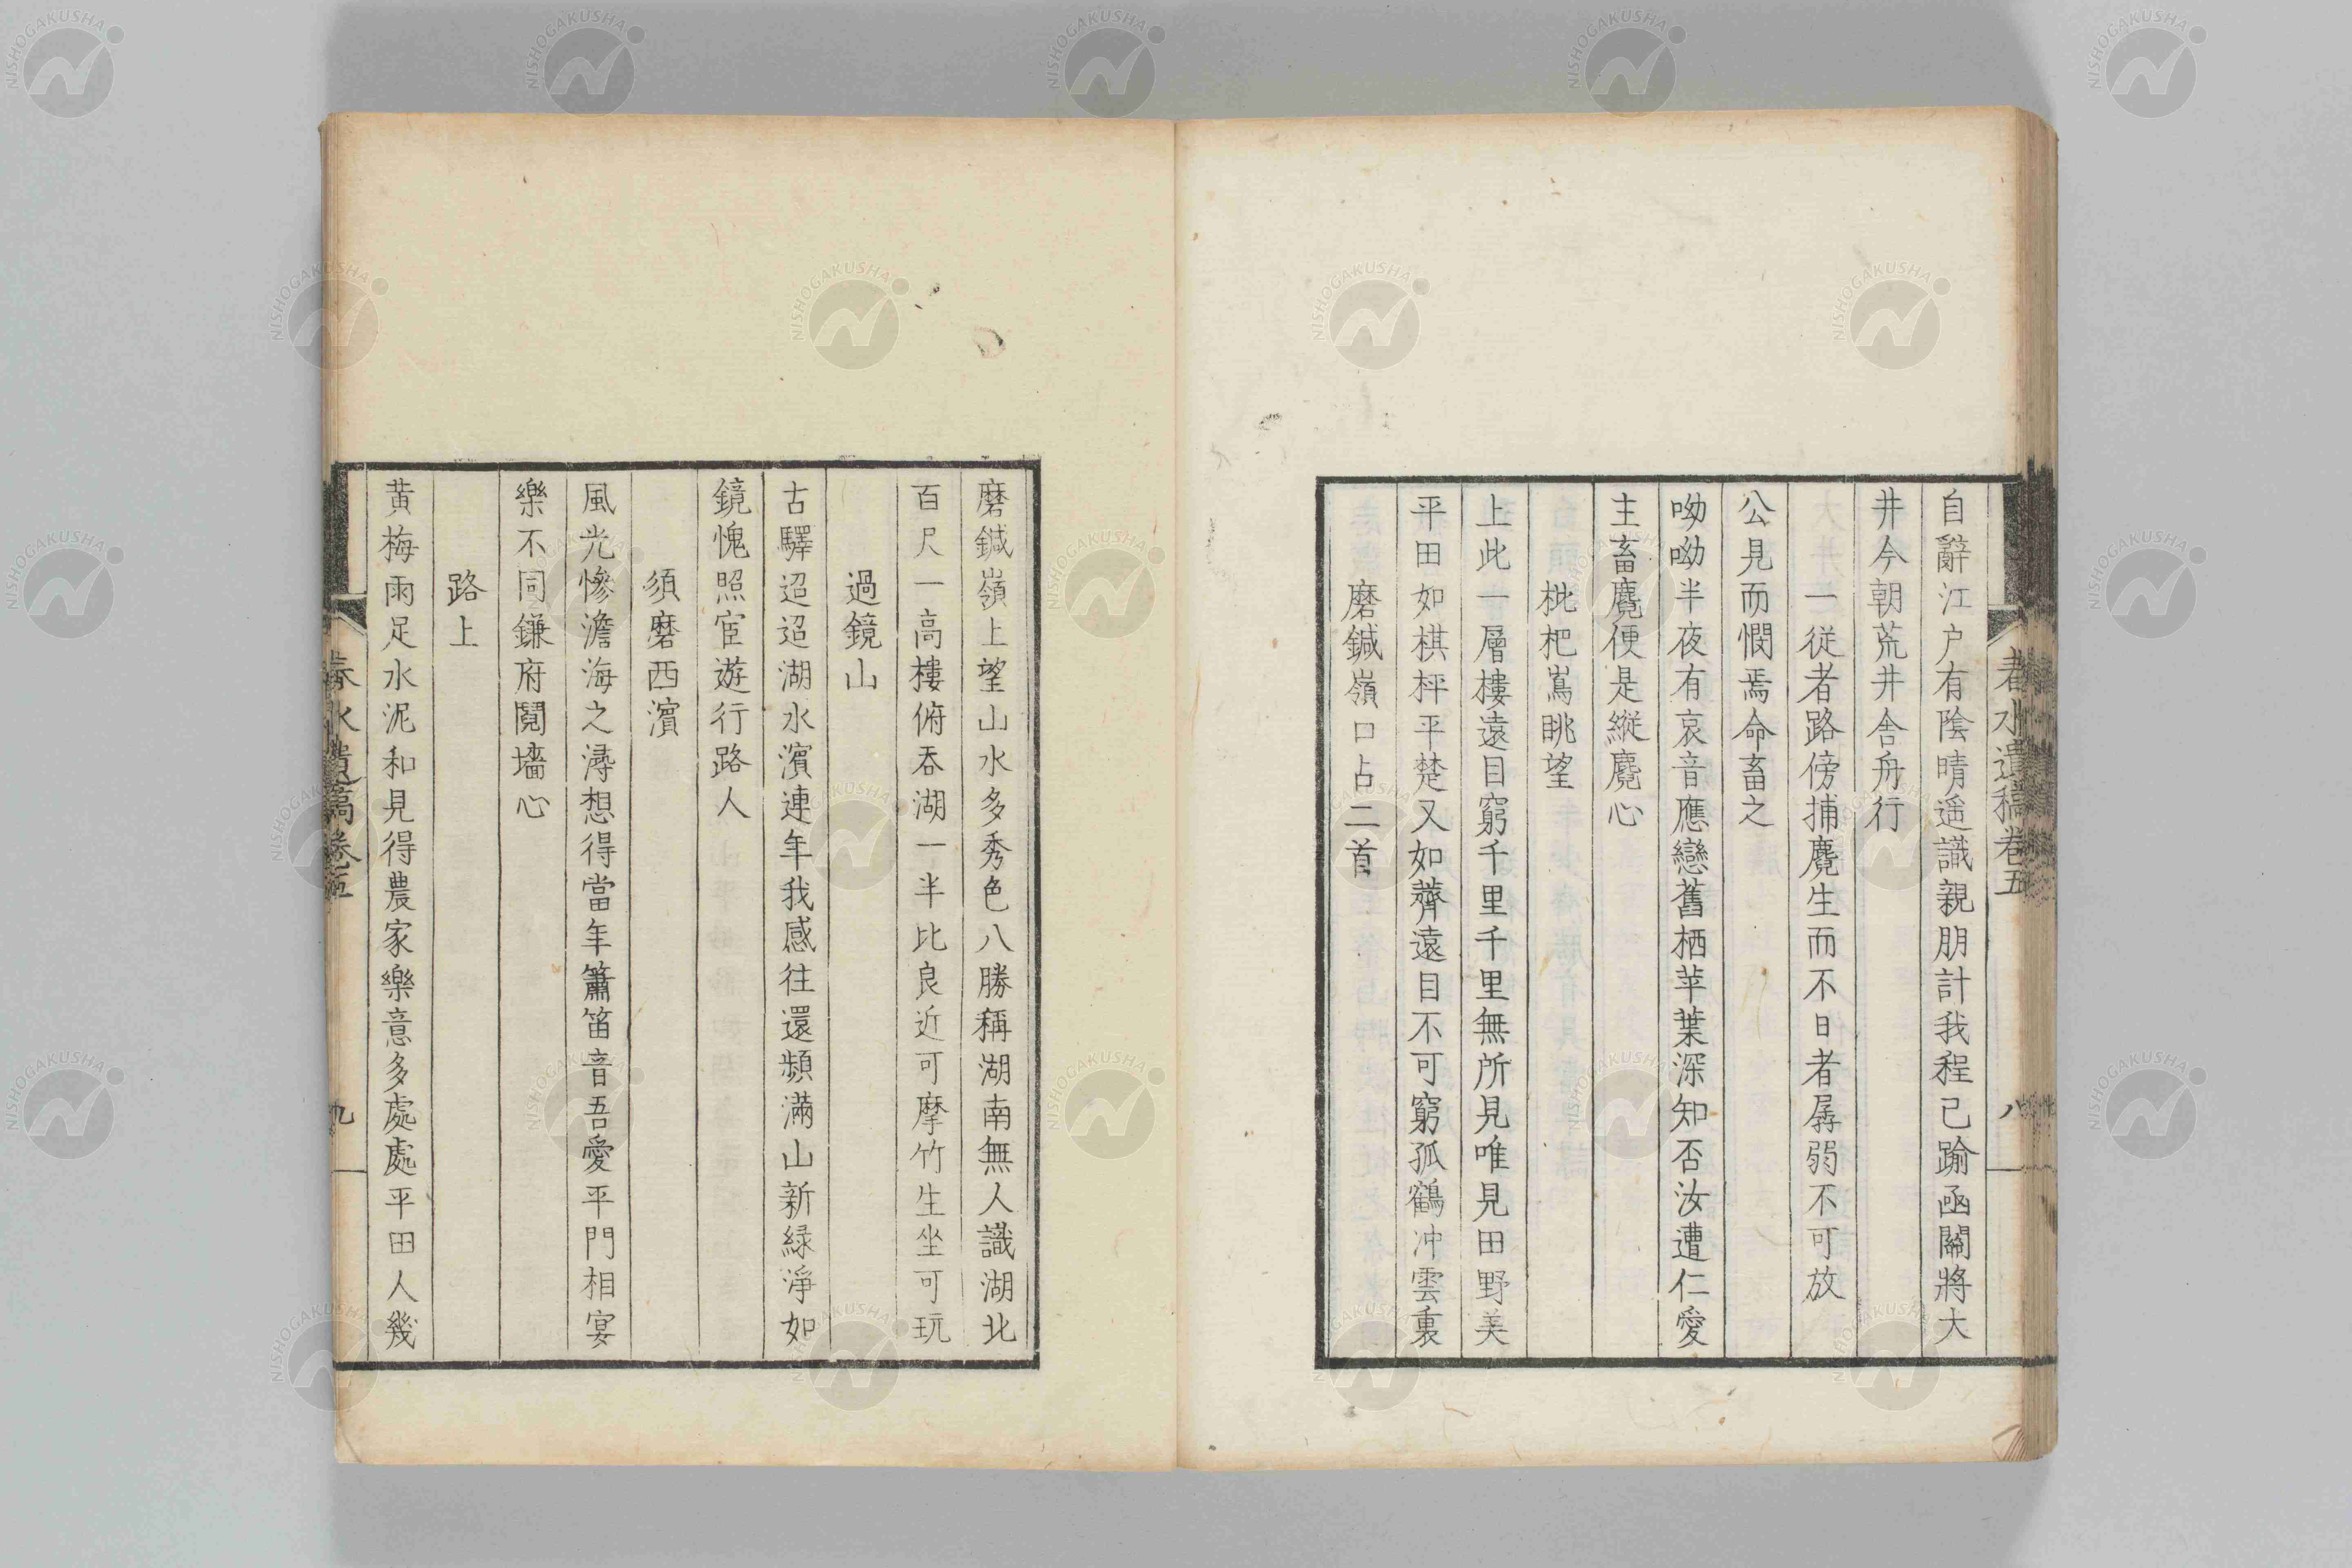 春水遺稿卷五
八
自辭江户有陰晴遥識親朋計我程已踰函關將大
井今朝荒井舍舟行
一従者路傍捕麑生而不日者孱弱不可放
公見而憫焉命畜之
呦呦半夜有哀音應戀舊栖苹葉深知否汝遭仁愛
主畜麑便是縱麑心
枇杷嶌眺望
上此一層樓遠目窮千里千里無所見唯見田野美
平田如棋枰平楚又如薺遠目不可窮孤鶴冲雲裏
磨鍼嶺口占二首
磨鍼嶺上望山水多秀色八勝稱湖南無人識湖北
百尺一高樓俯吞湖一半比良近可摩竹生坐可玩
過鏡山
古驛迢迢湖水濱連年我感往還頻滿山新緑淨如
鏡愧照宦遊行路人
須磨西濱
風光慘澹海之潯想得當年簫笛音吾愛平門相宴
樂不同鎌府鬩墻心
路上
黄梅雨足水泥和見得農家樂意多處處平田人幾
春水遺稿卷五
九
NISHOGAKUSHA